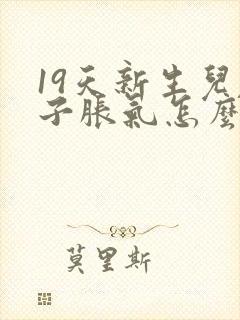 19天新生兒
子脹氣怎麼
莫里斯